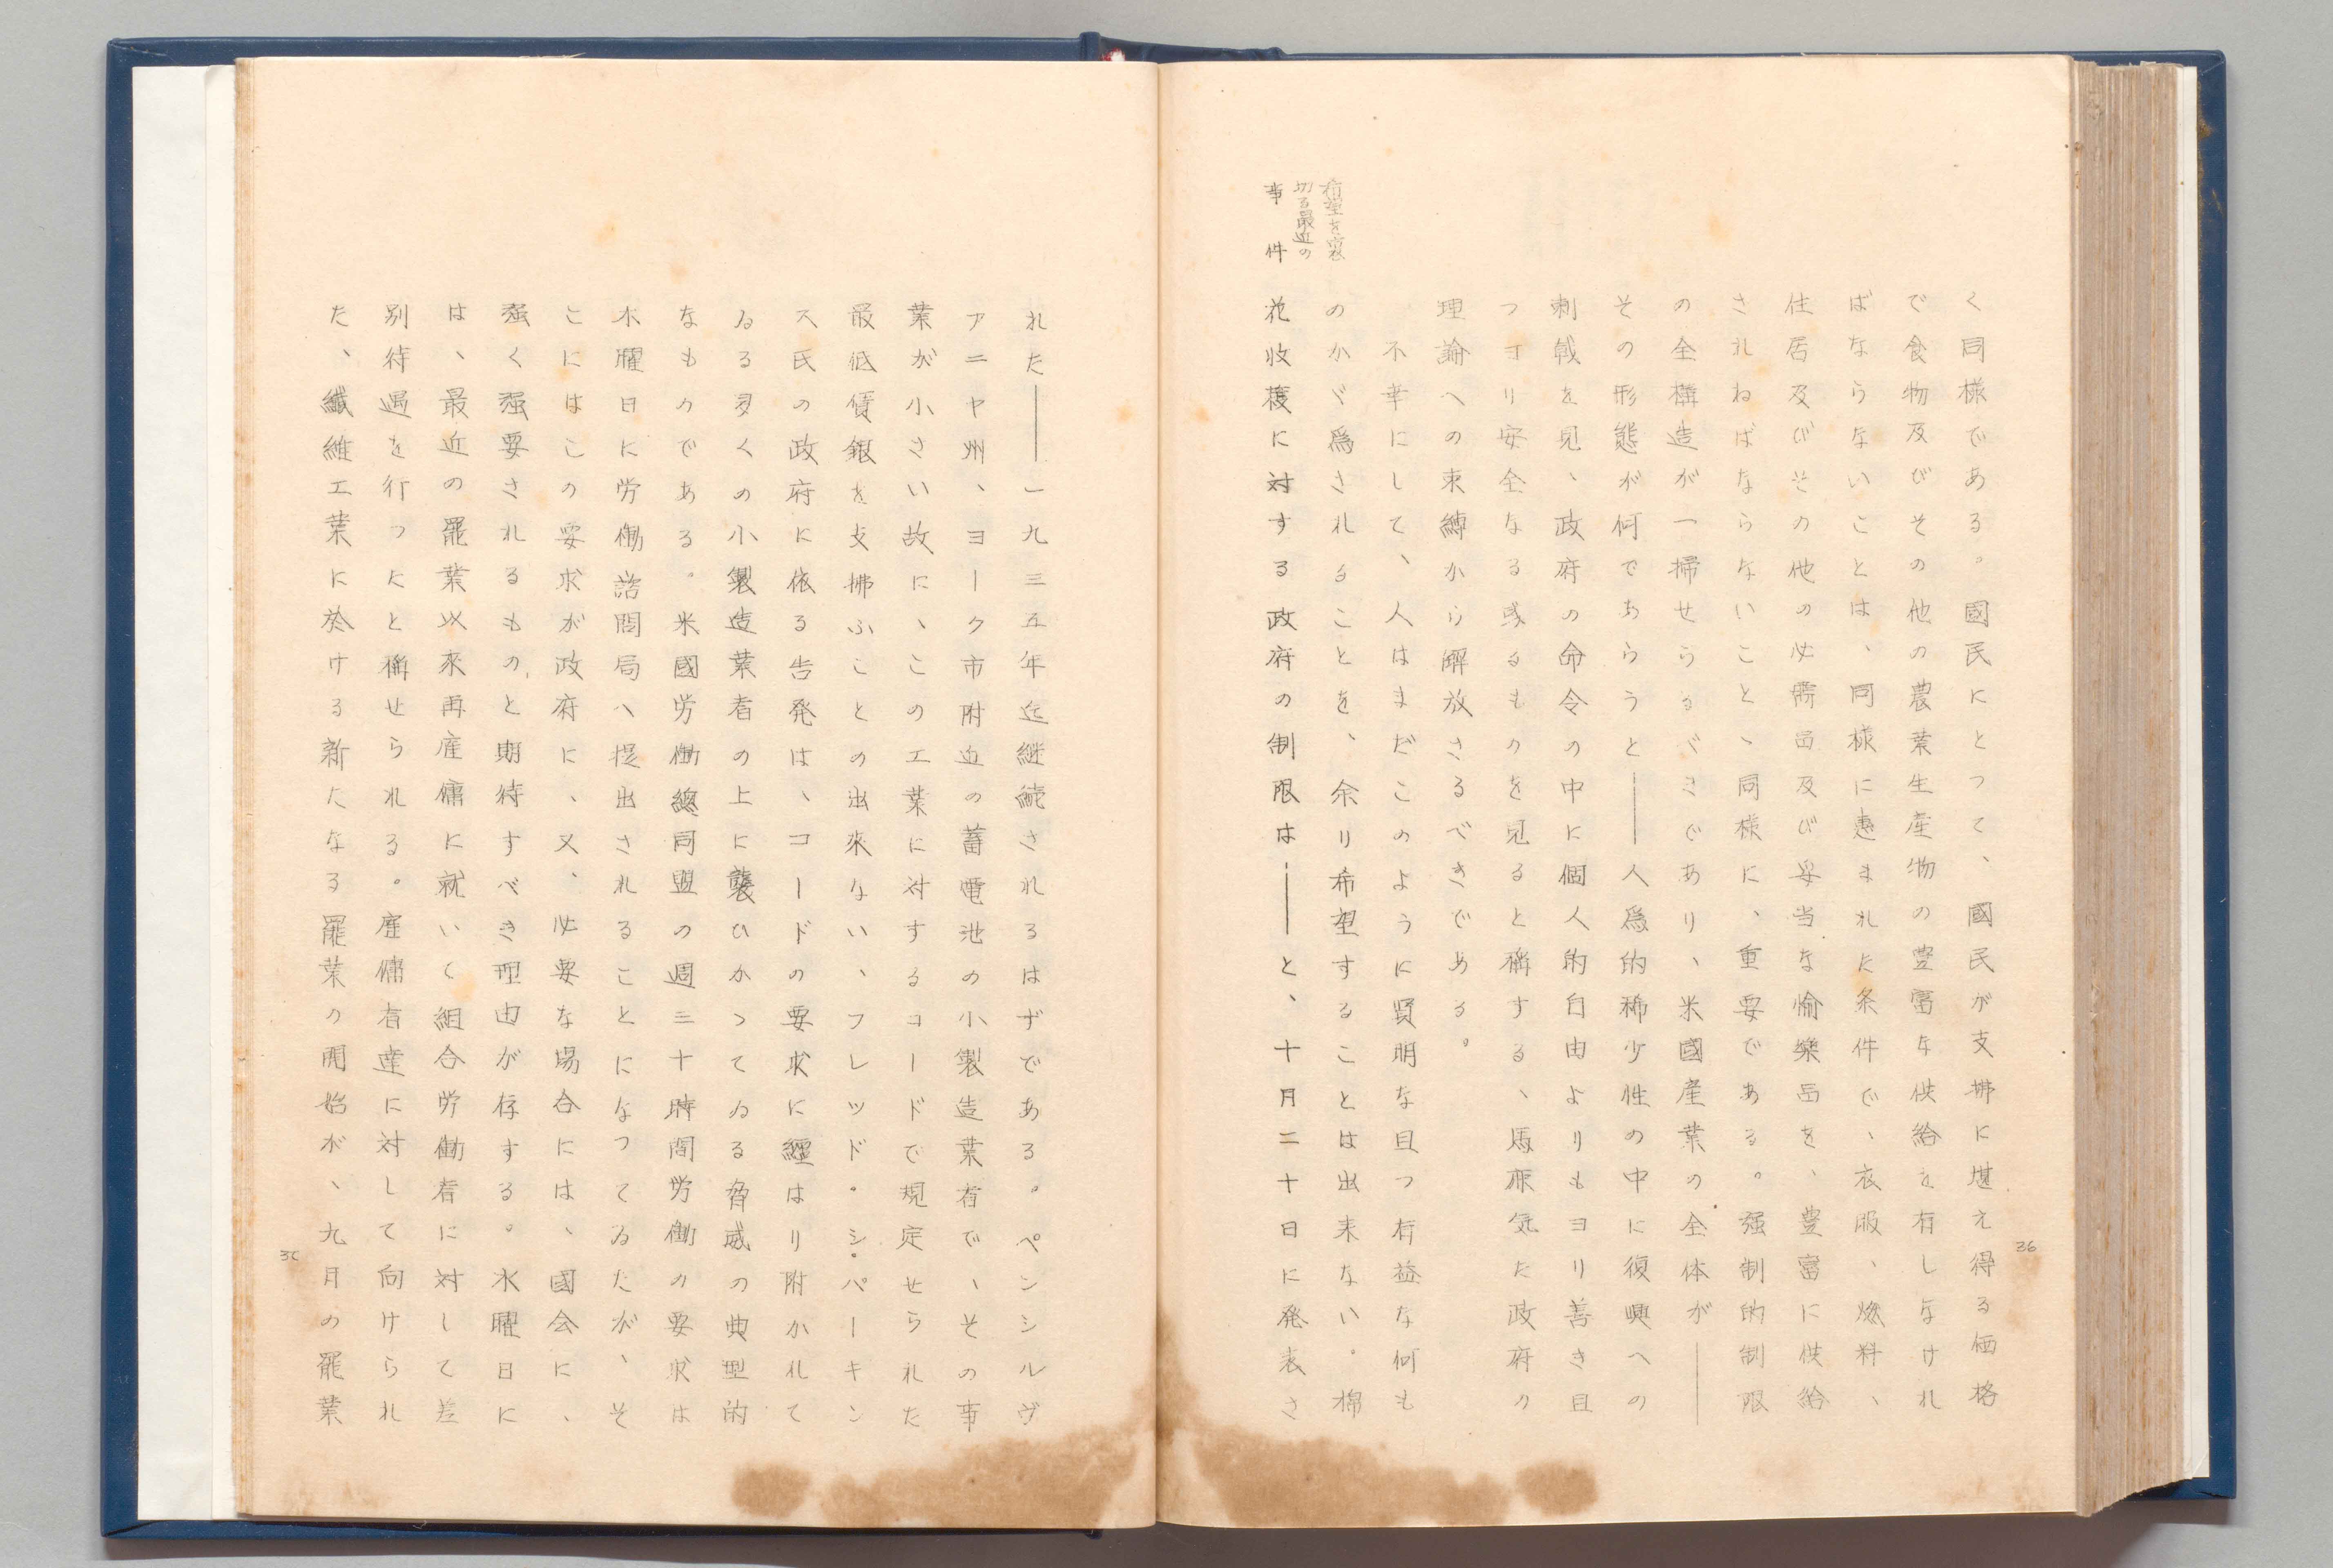 く同様である。國民にとつて、國民が支拂に堪え得る価格
で食物及びその他の農業生産物の豊富な供給を有しなけれ
ばならないことは、同様に恵まれた条件で、衣服、燃料、
住居及びその他の必需品及び妥当な愉樂品を、豊富に供給
されねばならないこと、同様に、重要である。强制的制限
の全構造が一掃せらるべきであり、米國産業の全体が――
その形態が何であらうと――人爲的稀少性の中に復興への
刺戟を見、政府の命令の中に個人的自由よりもヨリ善き且
つヨリ安全なる或るものを見ると稱する、馬鹿気た政府の
理論への束縛から解放さるべきである。
不幸にして、人はまだこのように賢明な且つ有益な何も
のかゞ爲されることを、余り希望することは出来ない。棉
希望を裏
切る最近の
事件
花收穫に対する政府の制限は――と、十月二十日に発表さ
26
れた――一九三五年迄継続されるはずである。ペンシルヴ
アニヤ州、ヨーク市附近の蓄電池の小製造業者で、その事
業が小さい故に、この工業に対するコードで規定せられた
最低賃銀を支拂ふことの出來ない、フレッド・シ・パーキン
ス氏の政府に依る告発は、コードの要求に縛はり附かれて
ゐる多くの小製造業者の上に襲ひかつてゐる脅威の典型的
なものである。米國労働總同盟の週三十時間労働の要求は
木曜日に労働諮問局へ提出されることになつてゐたが、そ
こにはこの要求が政府に、又、必要な場合には、國会に、
强く强要されるものと期待すべき理由が存する。水曜日に
は、最近の罷業以來再雇傭に就いて組合労働者に対して差
別待遇を行つたと稱せられる。雇傭者達に対して向けられ
た、纎維工業に於ける新たなる罷業の開始が、九月の罷業